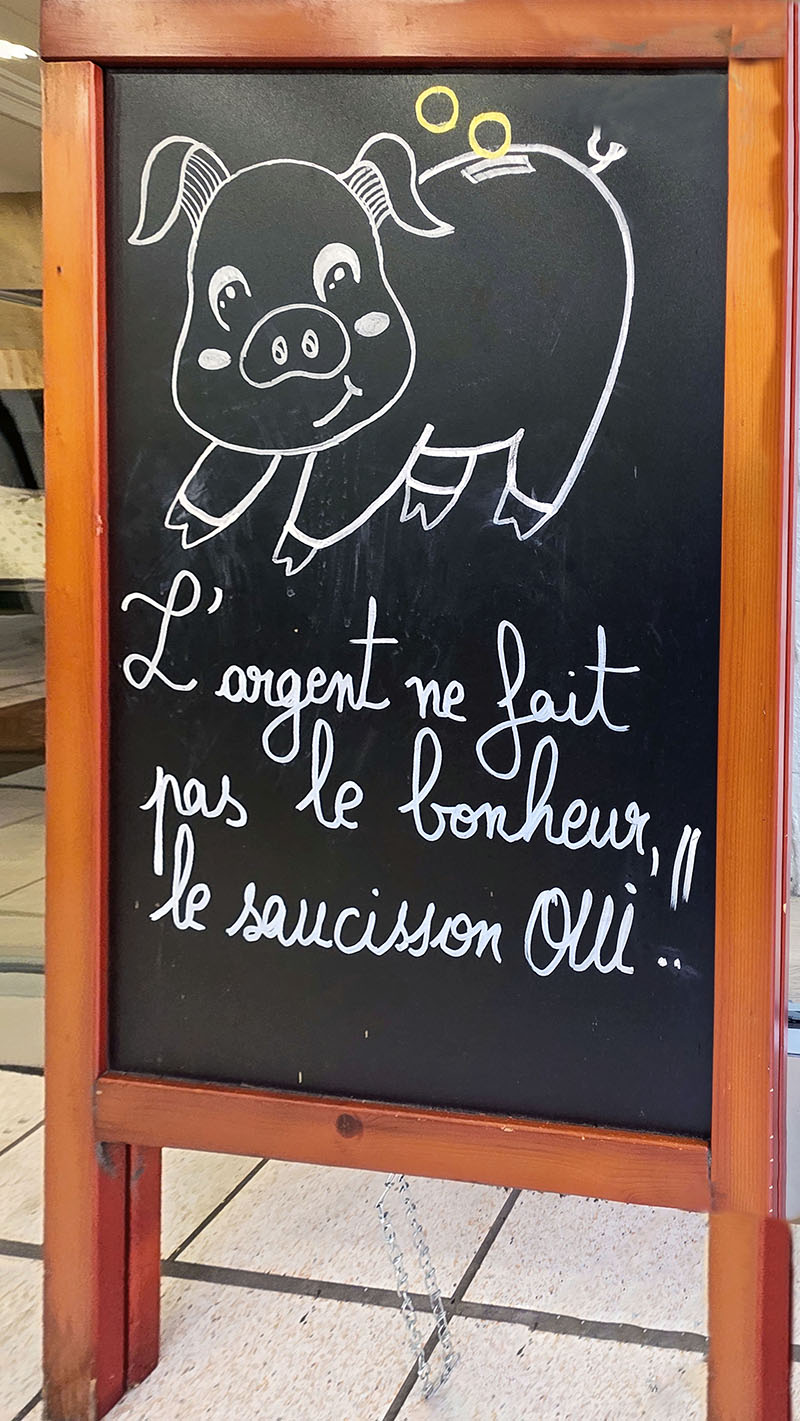 L'argent ne fait
pas le bonheur,
le saucisson OUi !!